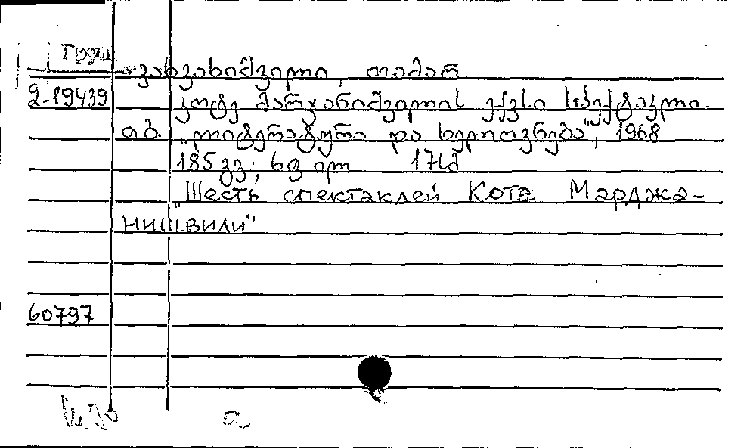 Груз
ვახვახიშვილი, თამარ
2-19439 კოტე მარჯანიშვილის ექვსი სპექტაკლი.
თბ. "ლიტერატურა და ხელოვნება", 1968
185 გვ; 6 ფ ილ
"Шесть спектаклей Котэ Марджа-
нишвили"
60797